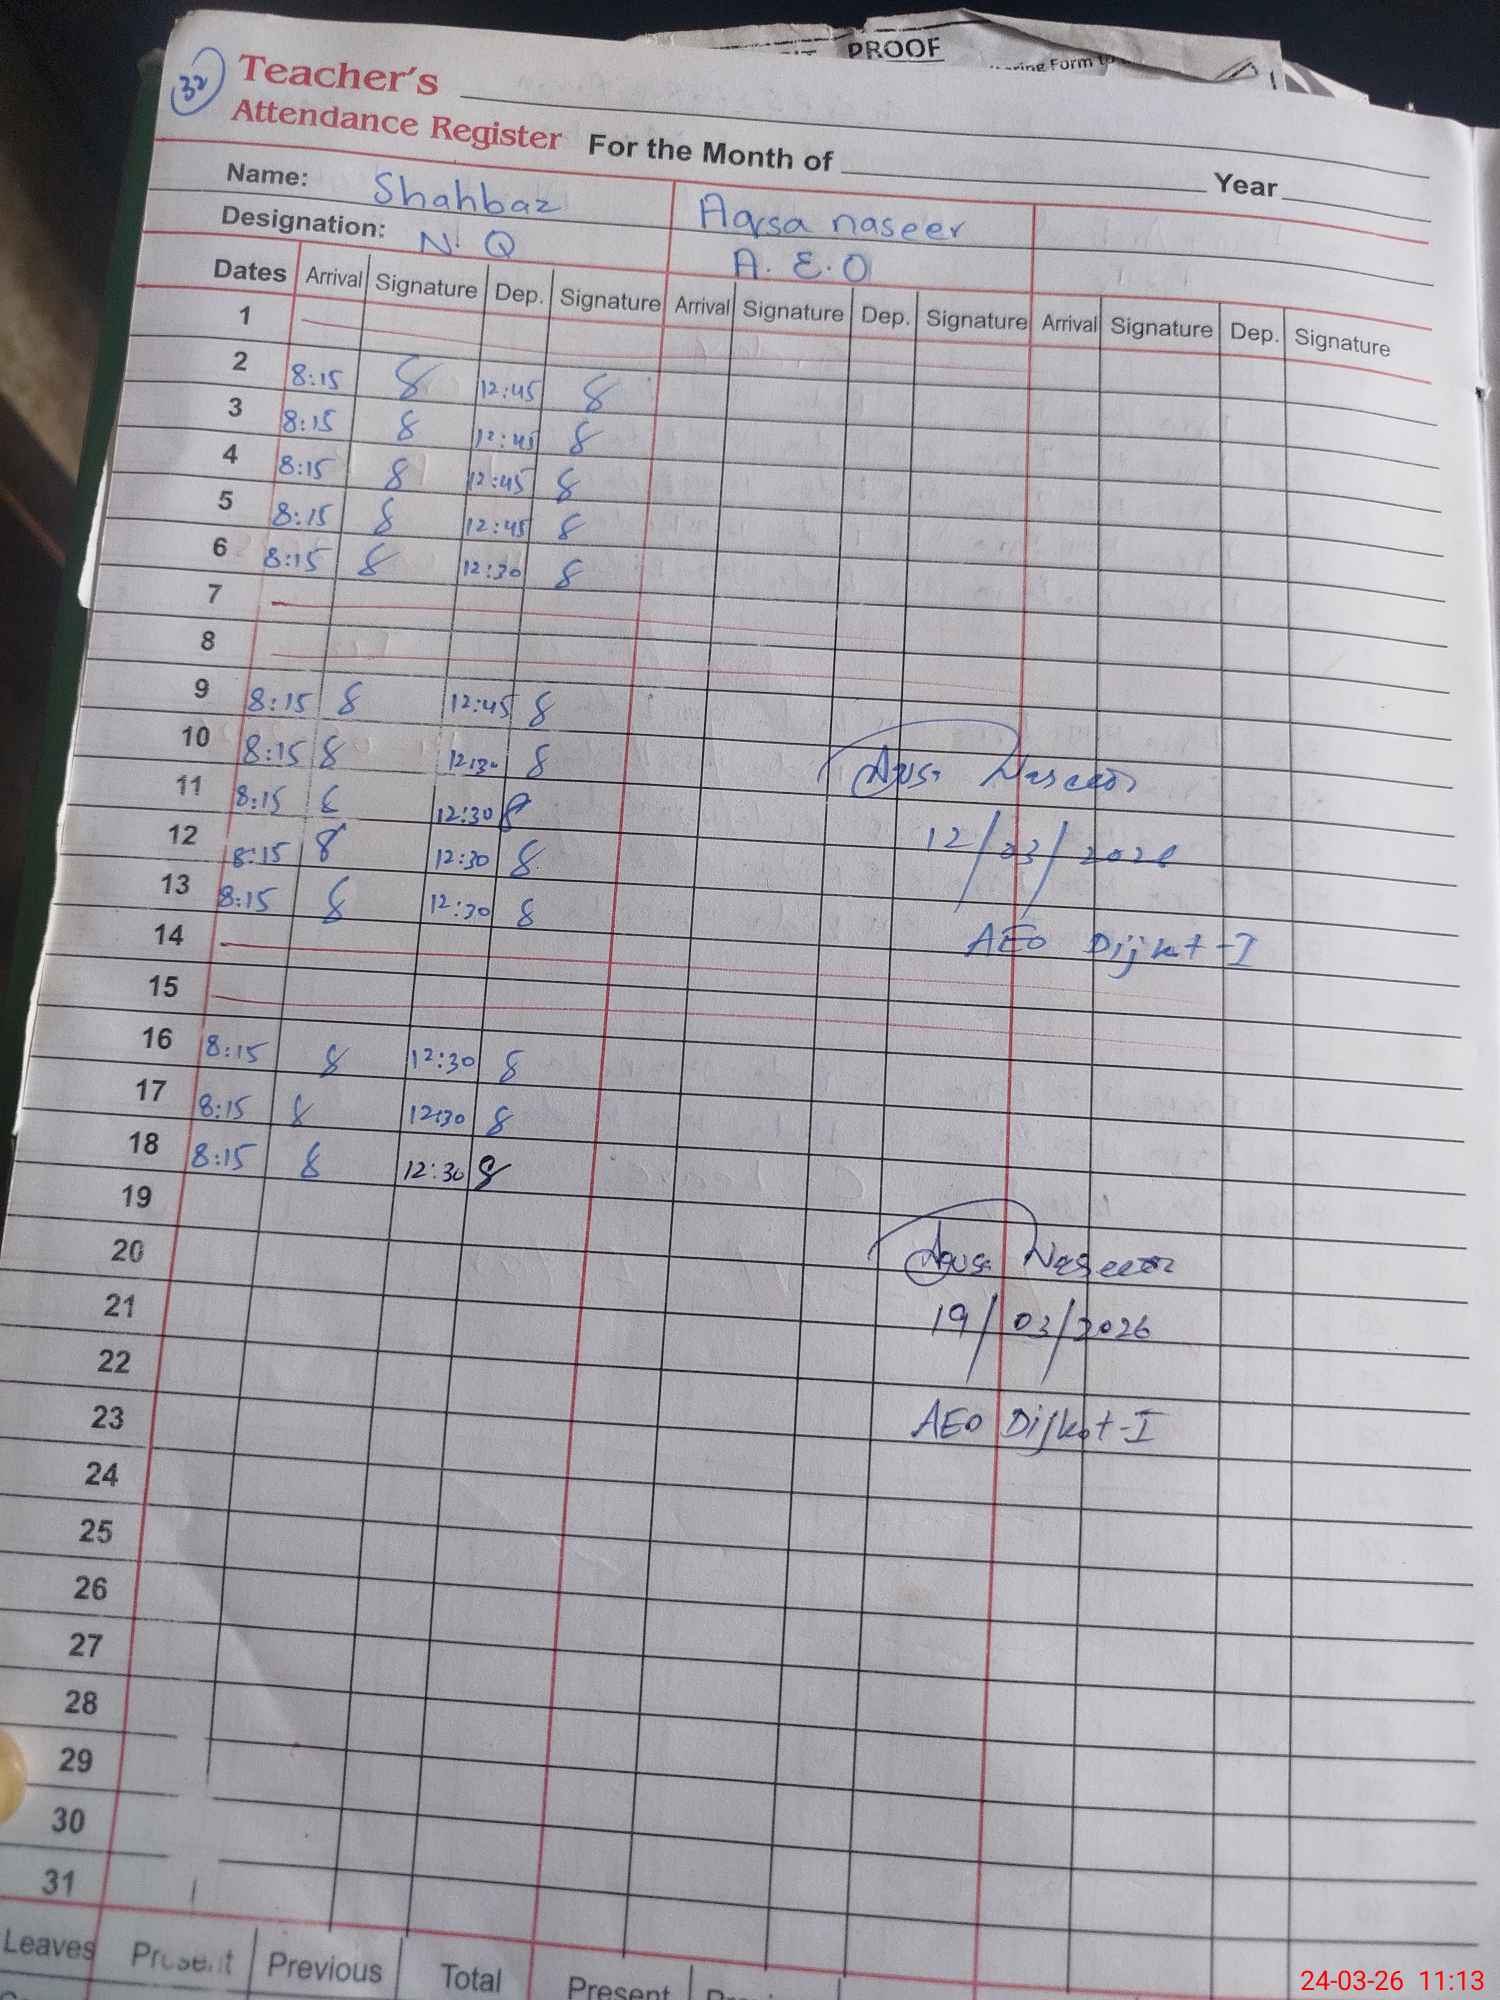 PROOF
Form
32
Teacher's
Attendance Register For the Month of Year
Name: Shahbaz Aqrsa naseer
Designation: N. Q A. E. O
Dates Arrival Signature Dep. Signature Arrival Signature Dep. Signature Arrival Signature Dep. Signature
1
2 8:15 8 12:45 8
3 8:15 8 12:45 8
4 8:15 8 12:45 8
5 8:15 8 12:45 8
6 8:15 8 12:30 8
7
8
9 8:15 8 12:45 8
10 8:15 8 12:30 8
11 8:15 8 12:30 8
12 8:15 8 12:30 8
13 8:15 8 12:30 8
14
15
16 8:15 8 12:30 8
17 8:15 8 12:30 8
18 8:15 8 12:30 8
19
20
21
22
23
24
25
26
27
28
29
30
31
Aqsa Naseer
12/03/2026
AEO Dijkot-I
Aqsa Naseer
19/03/2026
AEO Dijkot-I
Leaves Present Previous Total Present
24-03-26 11:13